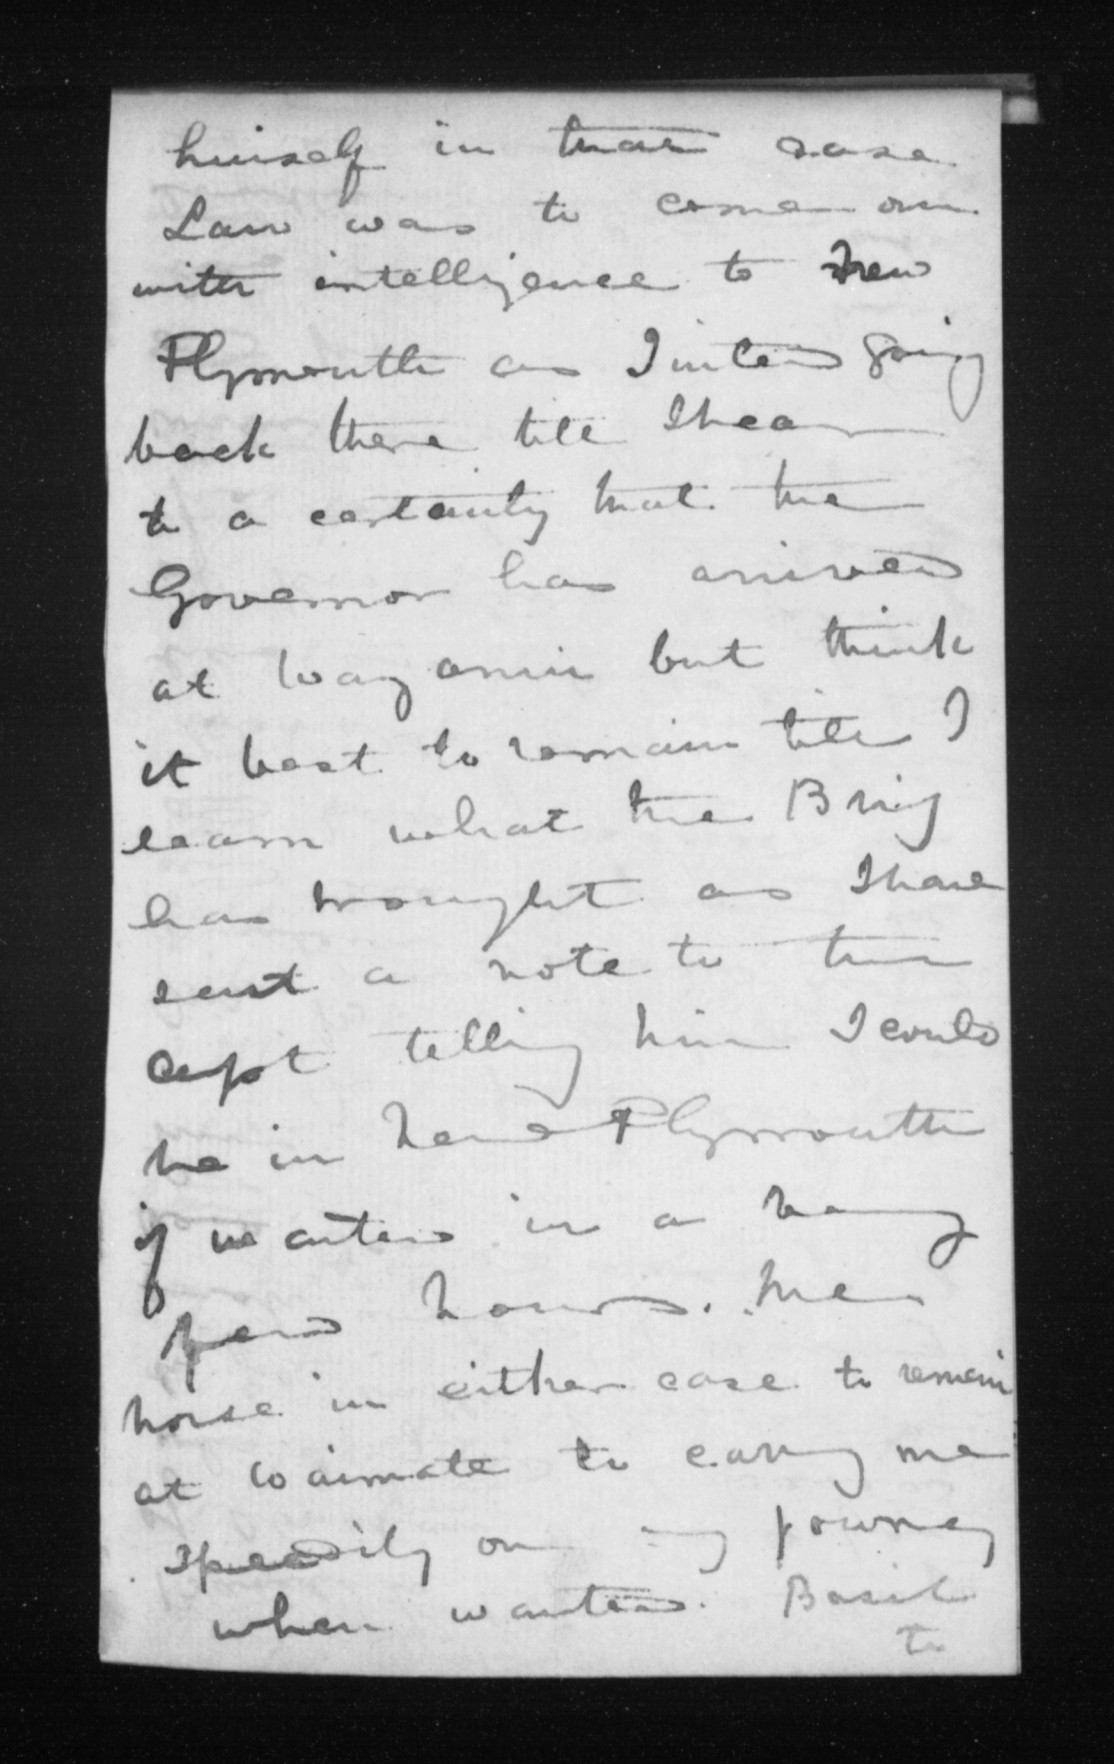 himself in that case
Law was to come on
with intelligence to New
Plymouth as I intend going
back there till I hear
to a certainty that the
Governor has arrived
at Wanganui but think
it best to remain till I
learn what the Brig
has brought as I have
sent a note to the
Capt telling him I could
be in New Plymouth
if wanted in a very
few hours. The
horse in either case to remain
at Waimate to carry me
speedily on my journey
when wanted. Basil
to